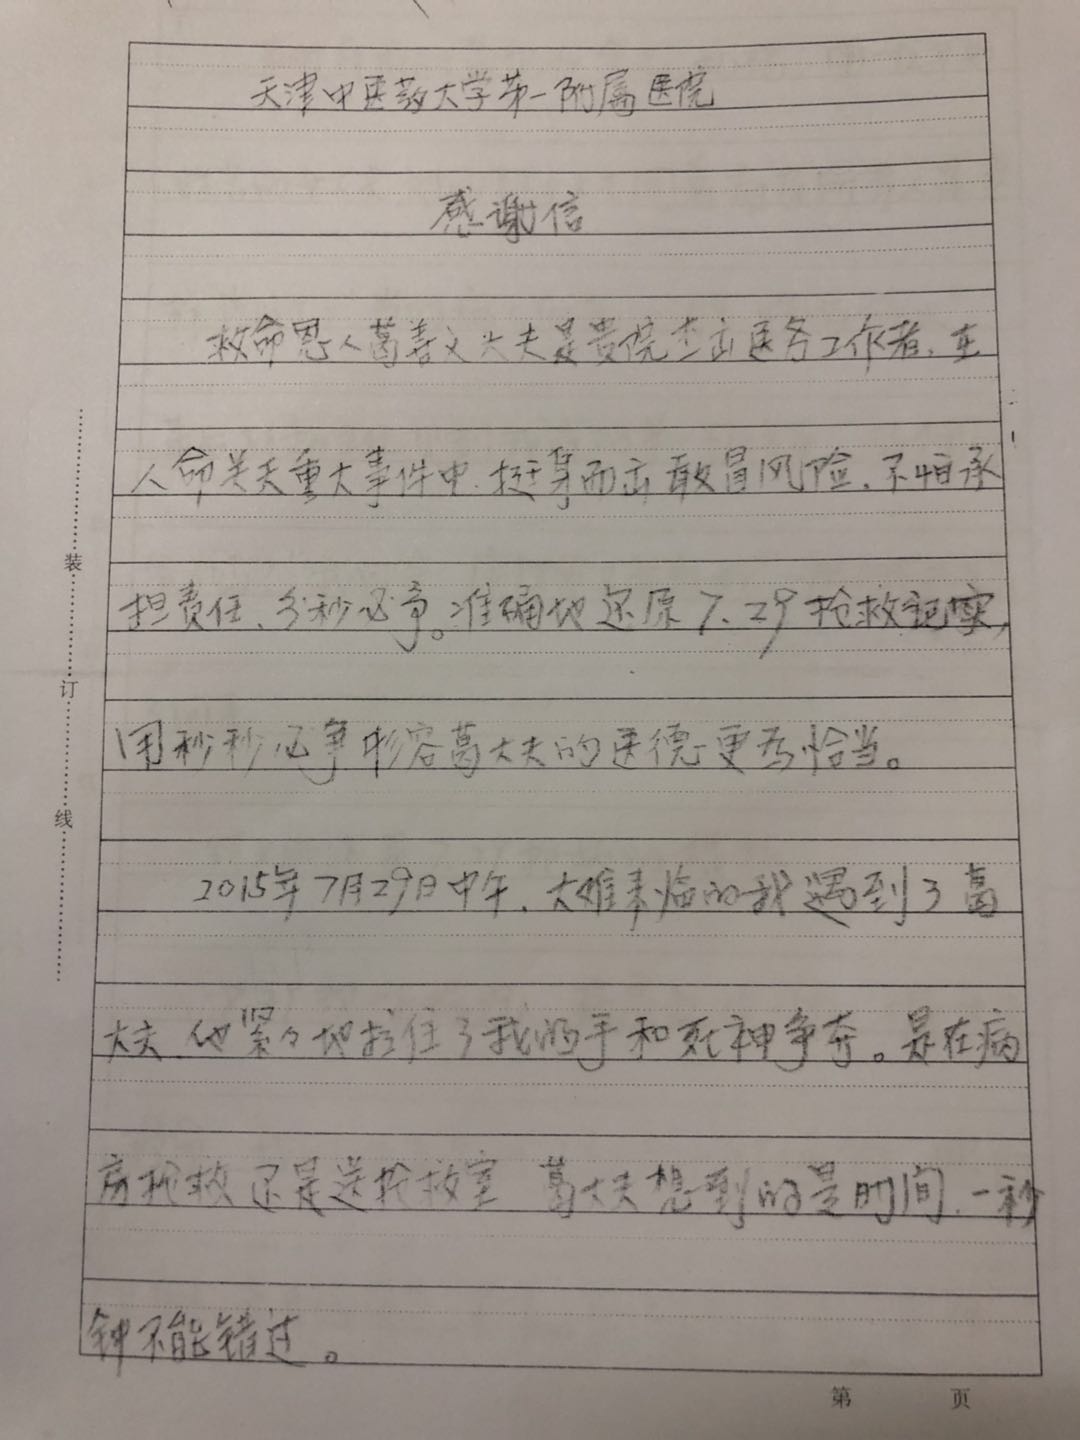 天津中医药大学第一附属医院
感谢信
救命恩人葛善文大夫是贵院杰出医务工作者、在
人命关天重大事件中、挺身而出敢冒风险、不怕承
担责任、分秒必争。准确地还原7、29抢救记实,
用秒秒必争形容葛大夫的医德更为恰当。
2015年7月29日中午、大难来临的我遇到了葛
大夫、他紧々地拉住了我的手和死神争夺。是在病
房抢救还是送抢救室 葛大夫想到的是时间、一秒
钟不能错过。
装
订
线
第 页